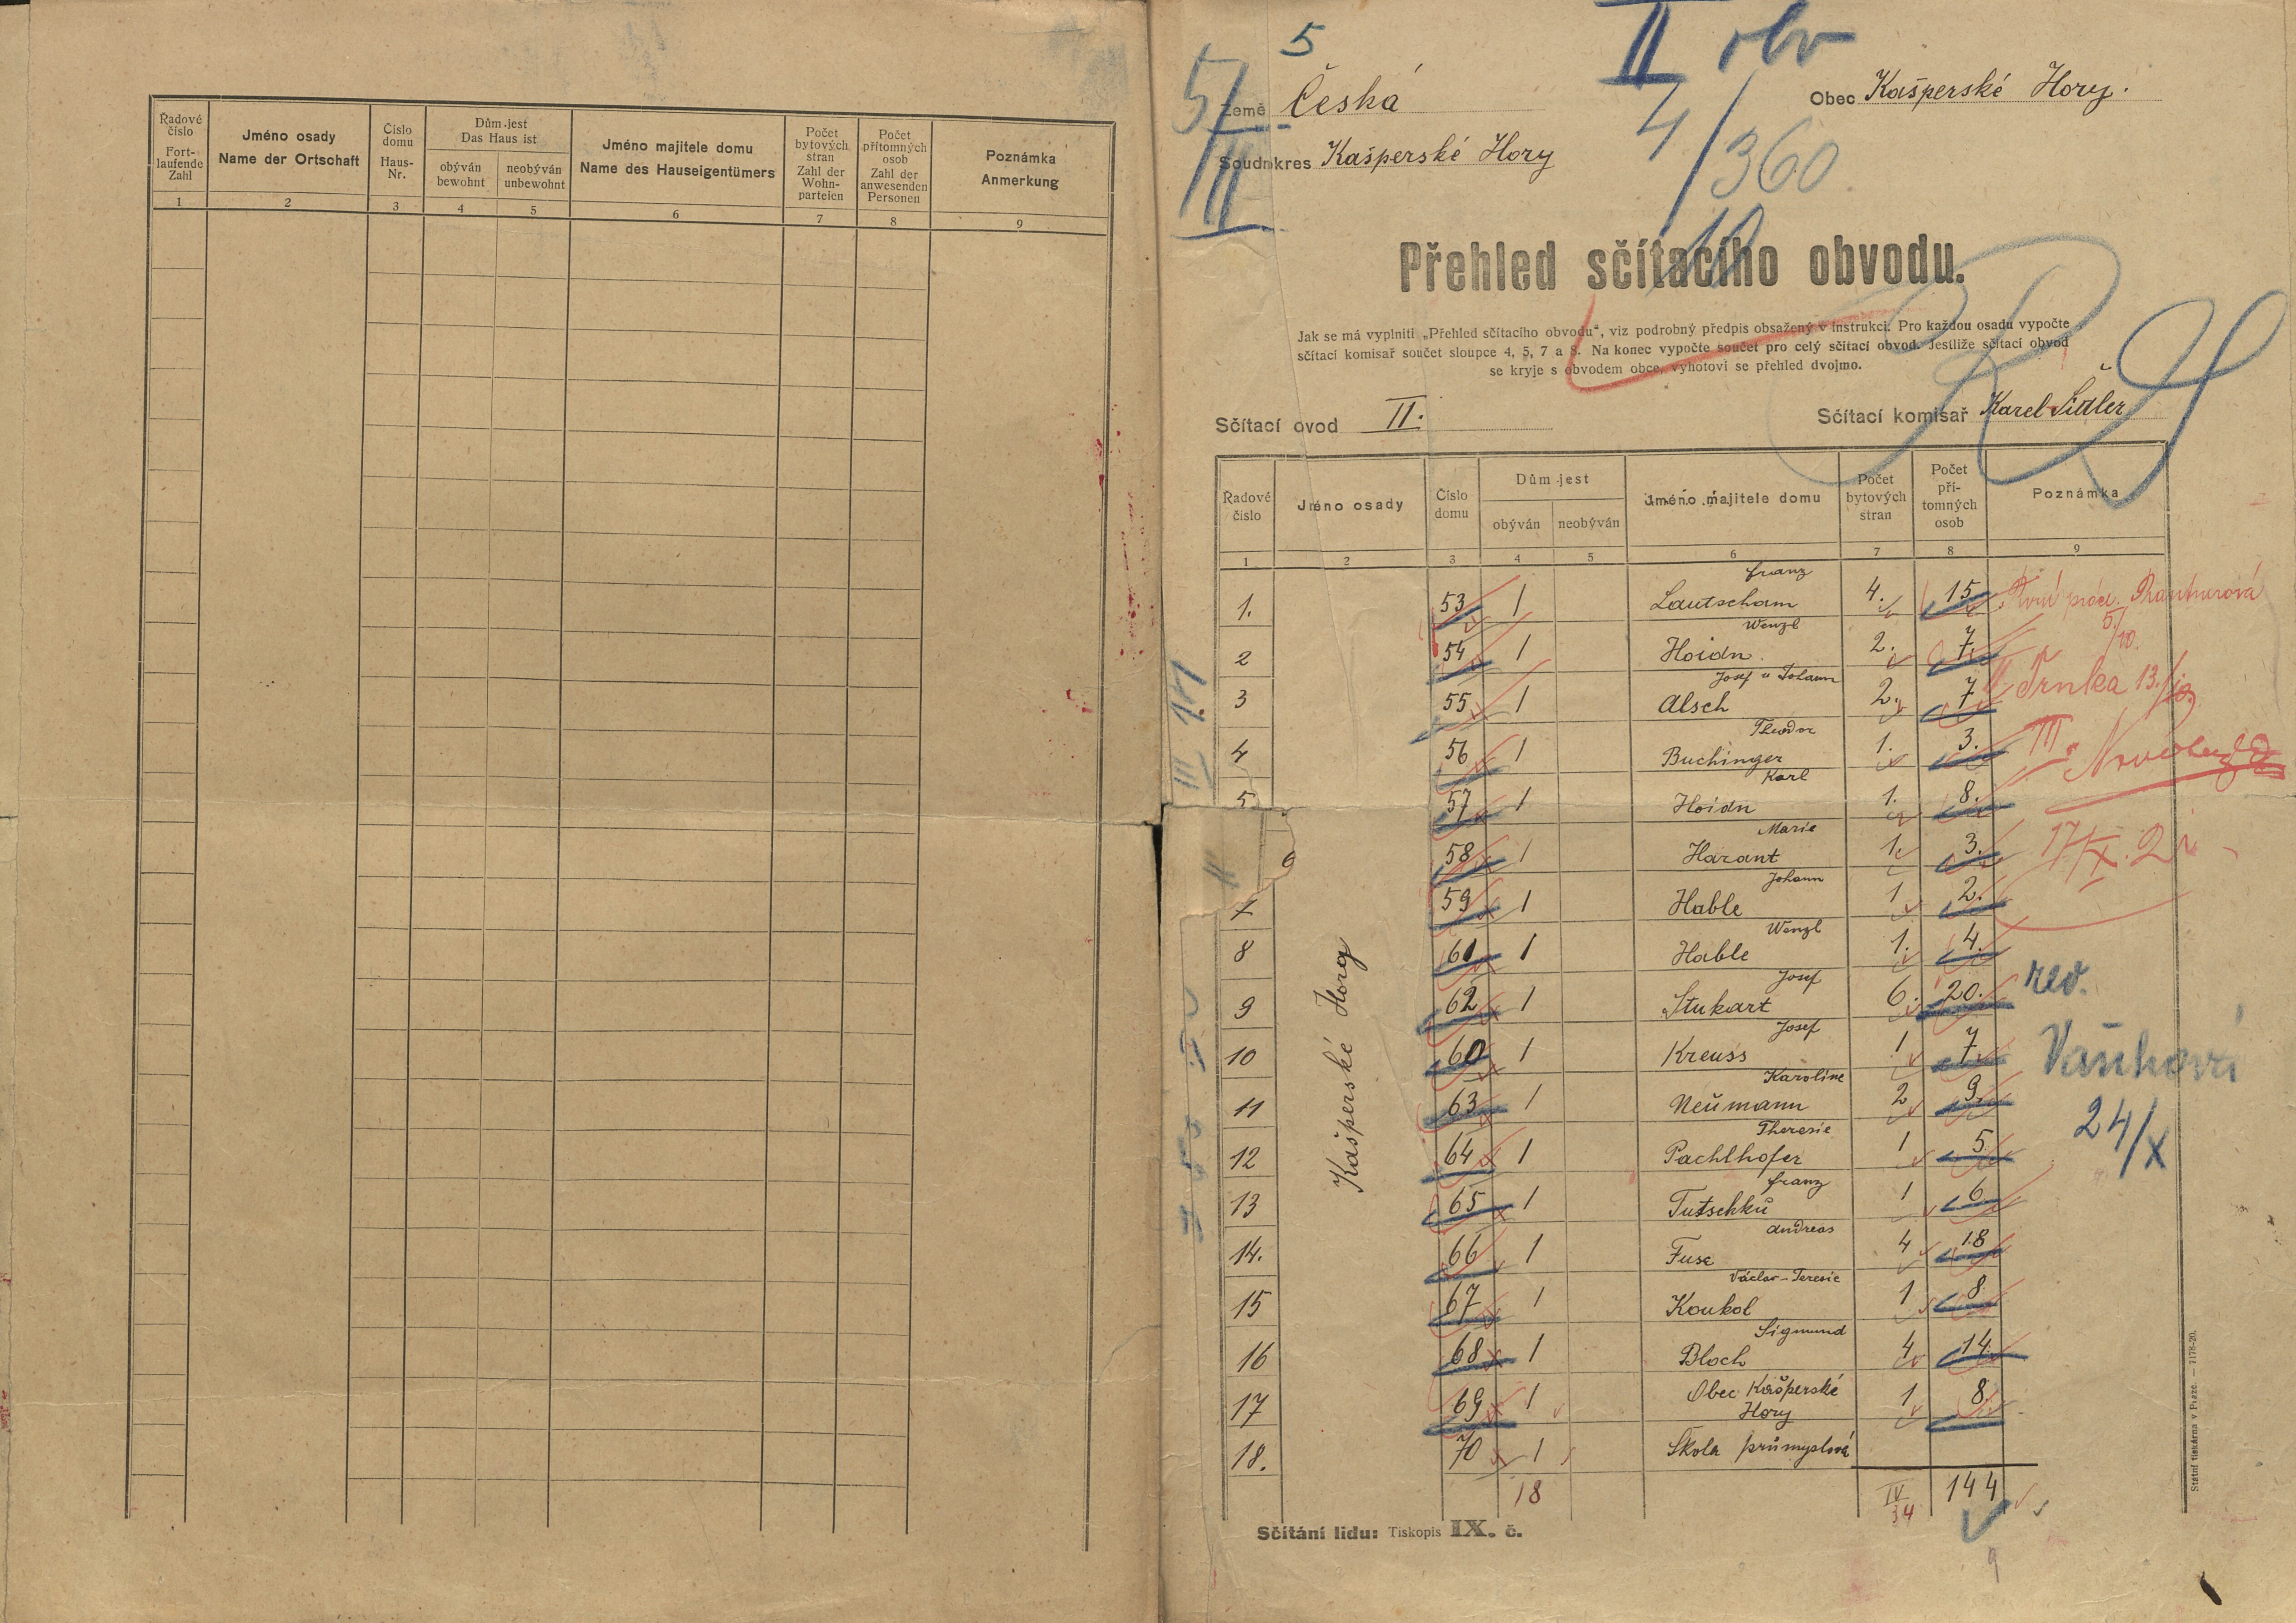 Řadové číslo
Fort-laufende Zahl
Jméno osady
Name der Ortschaft
Číslo domu
Haus-Nr.
Dům jest
Das Haus ist
obýván
bewohnt
neobýván
unbewohnt
Jméno majitele domu
Name des Hauseigentümers
Počet bytových stran
Zahl der Wohn-parteien
Počet přítomných osob
Zahl der anwesenden Personen
Poznámka
Anmerkung
1 2 3 4 5 6 7 8 9
5
II obv
5/II
Země Česká
Obec Kašperské Hory.
4/360
10
Soud. okres Kašperské Hory
Přehled sčítacího obvodu.
Jak se má vyplniti „Přehled sčítacího obvodu“, viz podrobný předpis obsažený v instrukci. Pro každou osadu vypočte
sčítací komisař součet sloupce 4, 5, 7 a 8. Na konec vypočte součet pro celý sčítací obvod. Jestliže sčítací obvod
se kryje s obvodem obce, vyhotoví se přehled dvojmo.
Sčítací ovod II.
Sčítací komisař Karel Šídler
Řadové číslo
Jméno osady
Číslo domu
Dům jest
obýván
neobýván
Jméno majitele domu
Počet bytových stran
Počet pří-tomných osob
Poznámka
1 2 3 4 5 6 7 8 9
Kašperské Hory
Franz
1. 53 1 Lautscham 4. 15
Wenzl
2 54 1 Hoidn 2. 7.
Josef u Johann
3 55 1 Alsch 2. 7
Trnka 13./10
Theodor
4 56 1 Buchinger 1. 3.
III.
Karl
5 57 1 Hoidn 1. 8.
Marie
6 58 1 Harant 1. 3.
17/X. 21
Johann
7 59 1 Hable 1 2.
Wenzl
8 61 1 Hable 1. 4.
rev.
Josef
9 62 1 Stukart 6. 20.
Josef
10 60 1 Kreuss 1 7
Karoline
11 63 1 Neumann 2 9.
24/X
Theresie
12 64 1 Pachlhofer 1 5
Franz
13 65 1 Tutschku 1 6
Andreas
14. 66 1 Fuse 4 18
Václav-Teresie
15 67 1 Koukol 1 8
Sigmund
16 68 1 Bloch 4 14
17 69 1 Obec Kašperské Hory 1 8
18. 70 1 Škola průmyslová
18 IV 34 144
Sčítání lidu: Tiskopis IX. č.
Státní tiskárna v Praze. — 7178-20.